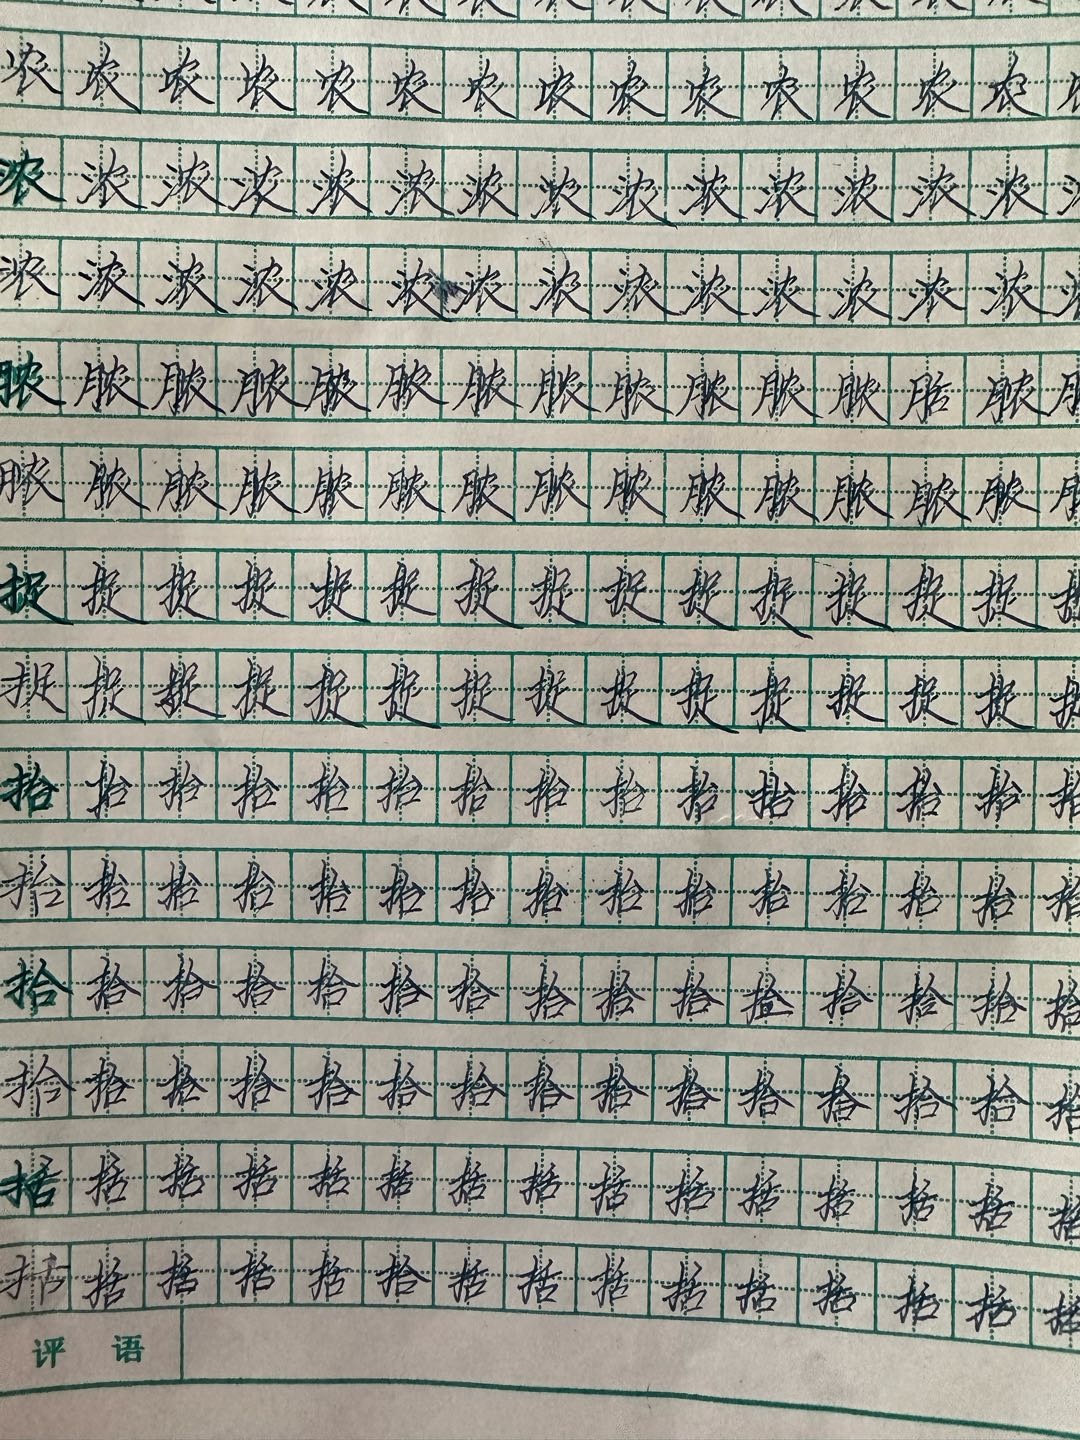 农农农农农农农农农农农农农农
浓浓浓浓浓浓浓浓浓浓浓浓浓浓
浓浓浓浓浓浓浓浓浓浓浓浓浓浓
脓脓脓脓脓脓脓脓脓脓脓脓脓
脓脓脓脓脓脓脓脓脓脓脓脓脓脓
捉捉捉捉捉捉捉捉捉捉捉捉捉捉
捉捉捉捉捉捉捉捉捉捉捉捉捉捉
抬抬抬抬抬抬抬抬抬抬抬抬抬抬
抬抬抬抬抬抬抬抬抬抬抬抬抬抬
拾拾拾拾拾拾拾拾拾拾拾拾拾
拾拾拾拾拾拾拾拾拾拾拾拾拾拾
括括括括括括括括括括括括括括
括括括括括拾括括括括括括括括
评语